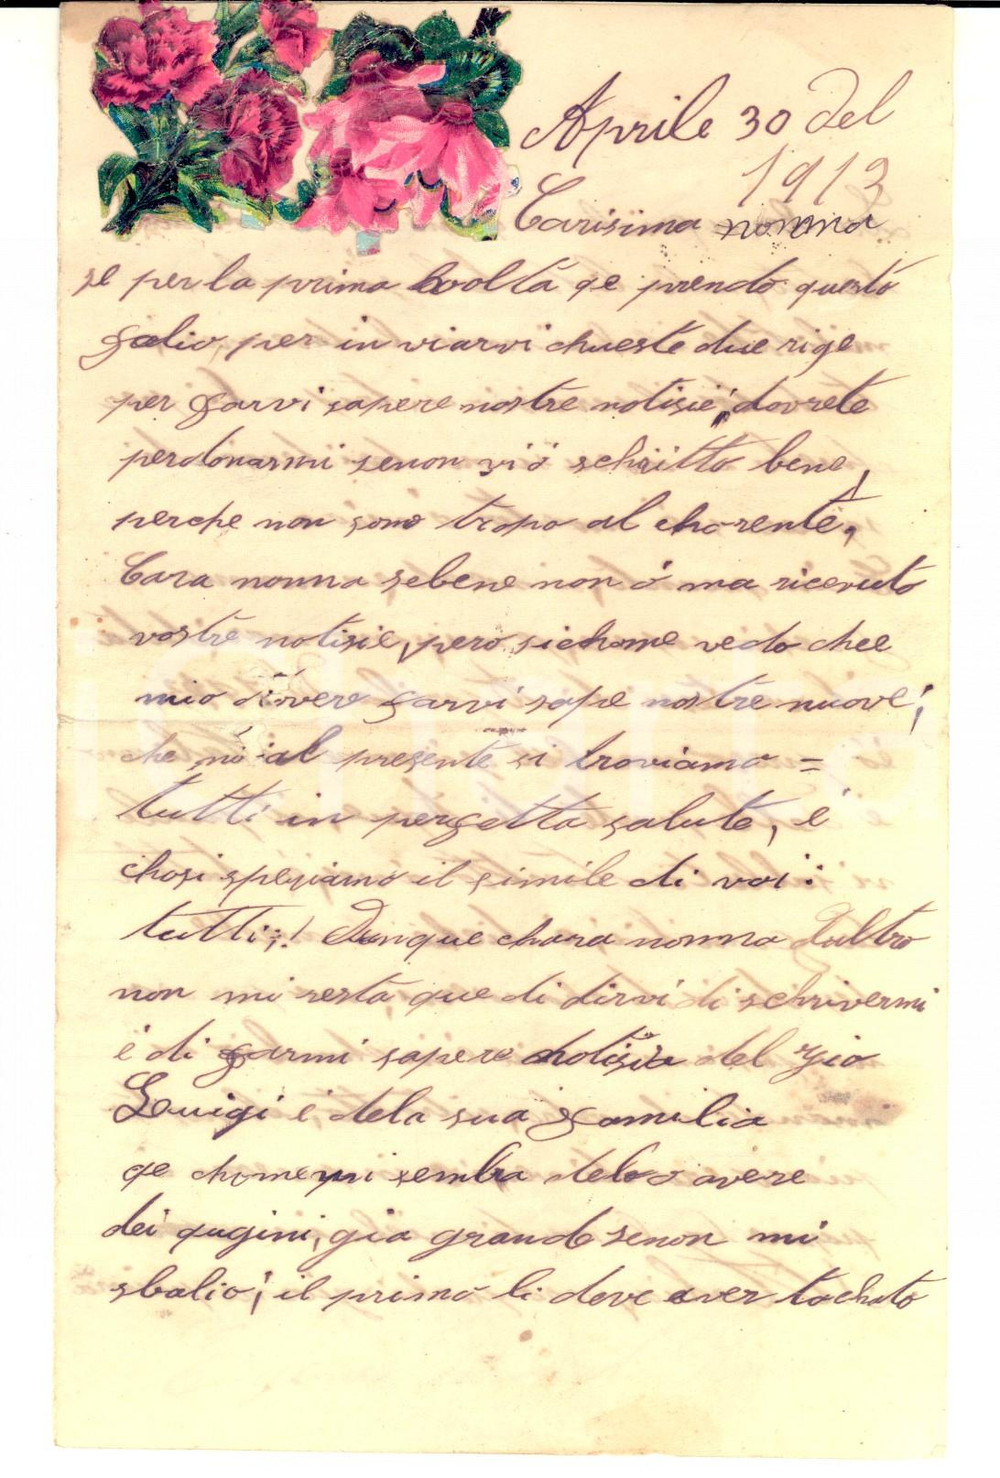 Aprile 30 del
1913
Carisima nonna
se per la prima voolta qe prendo questo
folio, per in viarvi chueste due rige
per farvi sapere nostre notisie; dovrete
perdonarmi senon vi ó schritto bene,
perche non sono tropo al chorente,
Cara nonna sebene non ó ma ricevuto
vostre notisie, pero sichome vedo chee
mio dovere farvi sape nostre nuove;
che noi al presente si troviamo =
tutti in perfetta salute, é
chosi speriamo il simile di voi:
tutti;! Dunque chara nonna daltro
non mi resta, que di dirvi di schrivermi
é di farmi sapere notisie del zio
Luigi é dela sua familia
qe chome mi sembra debo avere
dei qugini, gia grande senon mi
sbalio; il primo li deve aver tochato